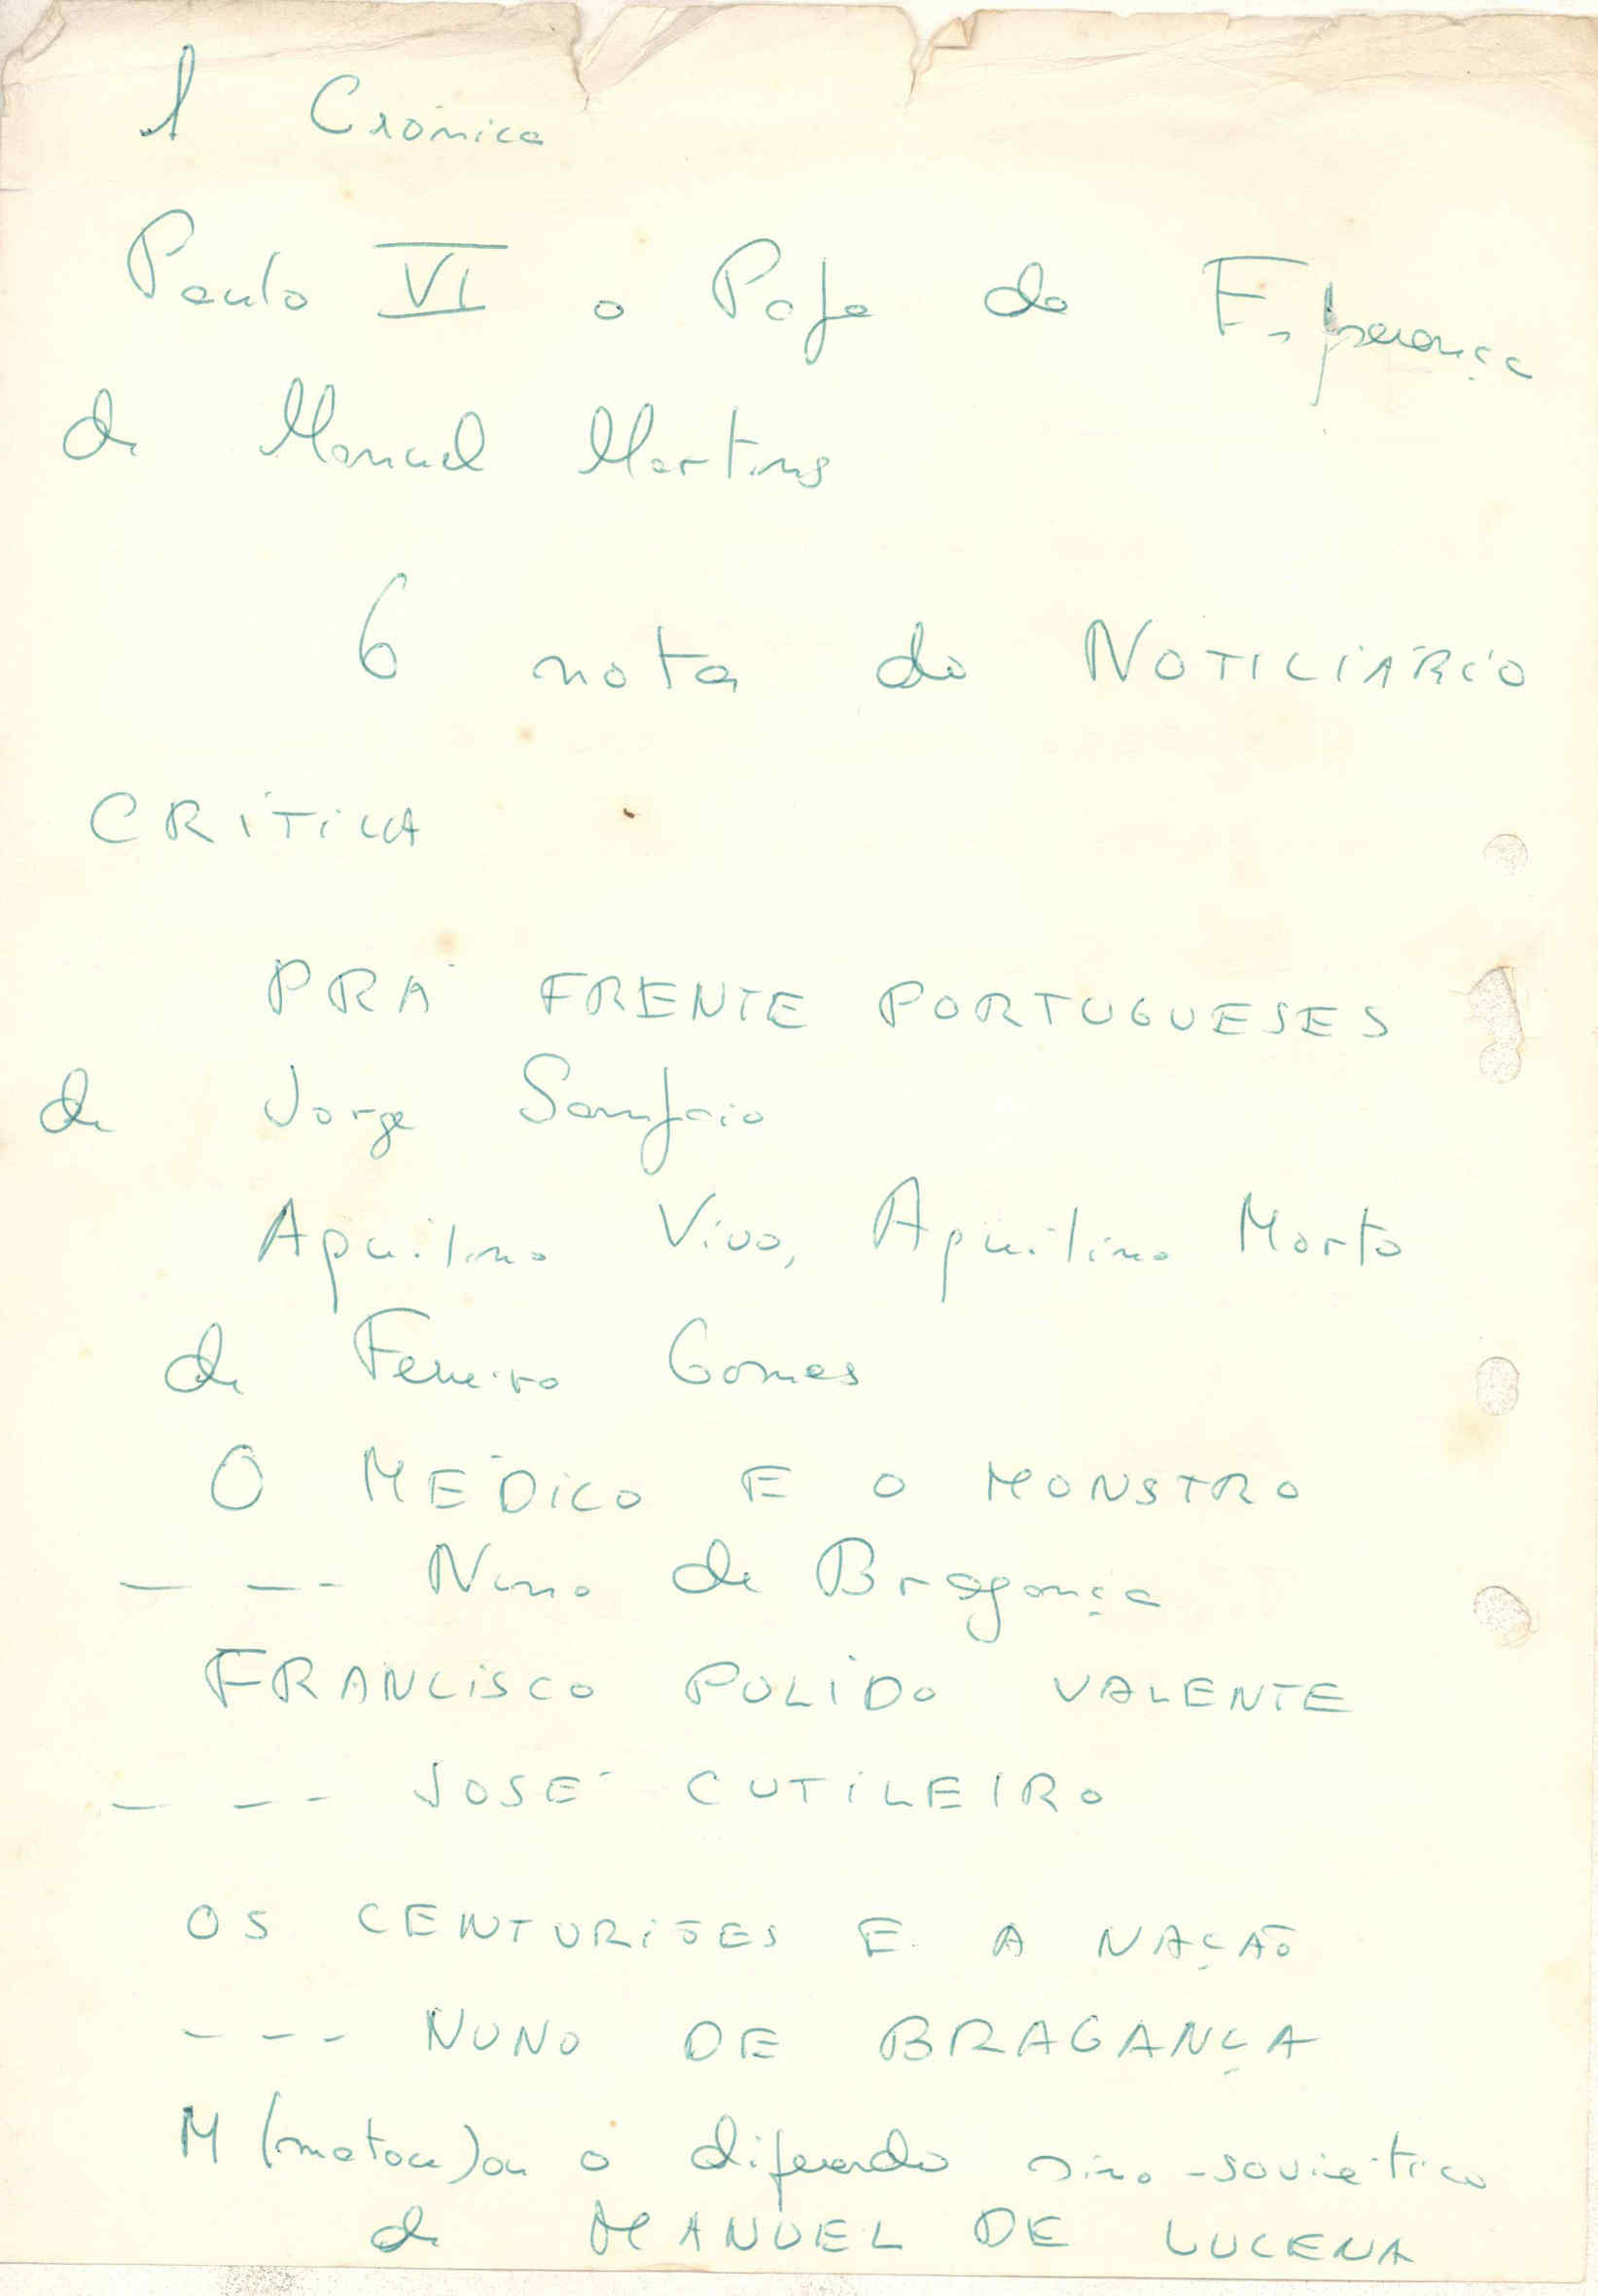 1 Crónica
Paulo VI o Papa da Esperança
de Manuel Martins
6 nota do NOTICIÁRIO
CRÍTICA
PRÁ FRENTE PORTUGUESES
de Jorge Sampaio
Aquilino Vivo, Aquilino Morto
de Ferreira Gomes
O MÉDICO E O MONSTRO
— — - Nuno de Bragança
FRANCISCO PULIDO VALENTE
— — - JOSÉ CUTILEIRO
OS CENTURIÕES E A NAÇÃO
- - - NUNO DE BRAGANÇA
M (matou) ou o diferendo sino-soviético
de MANUEL DE LUCENA